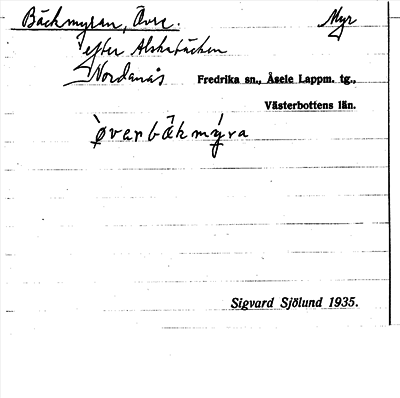 Bäckmyran, Övre. Myr
efter Alskabäcken
Nordanås Fredrika sn., Åsele Lappm. tg.,
Västerbottens län.
ò̤varbäkmý̤ra
Sigvard Sjölund 1935.